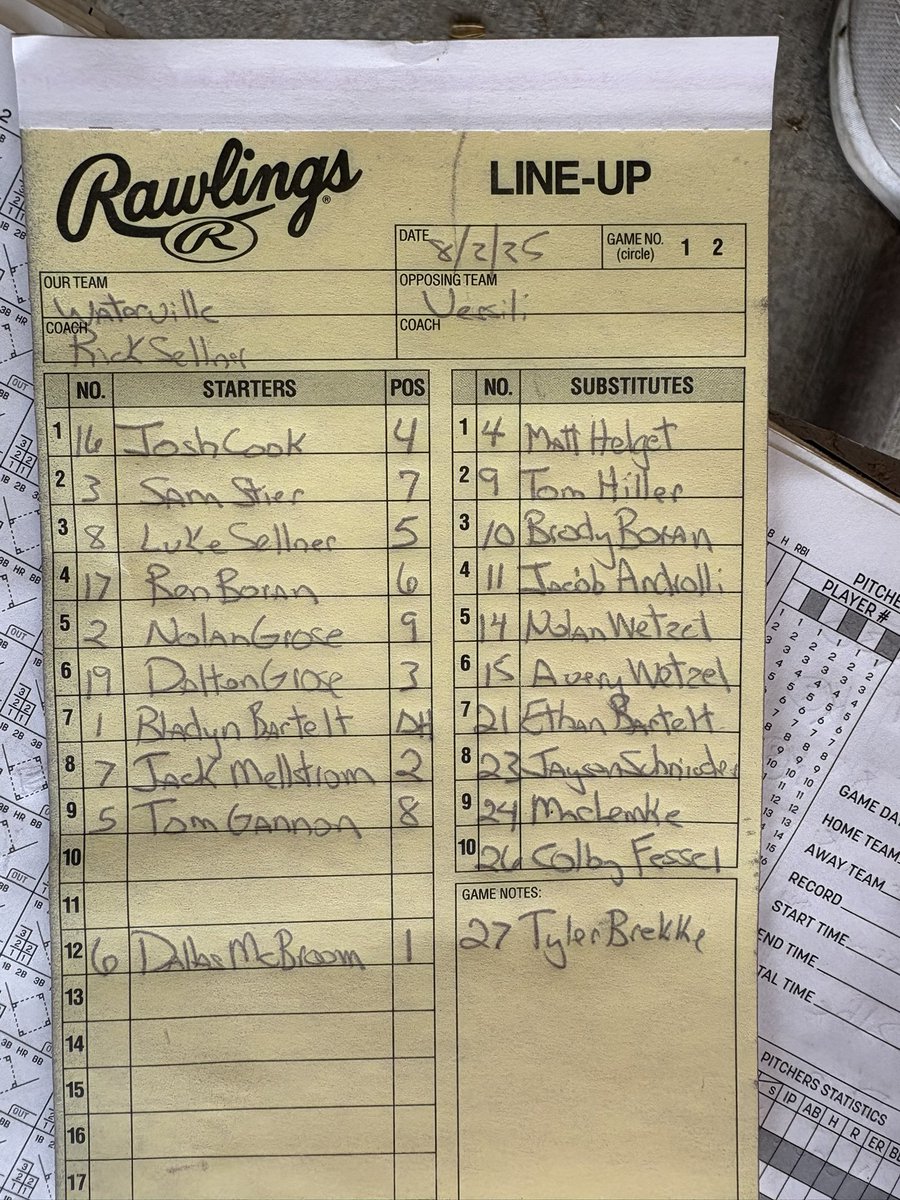 Rawlings ®
R
LINE-UP
DATE 8/2/25
GAME NO. (circle) 1 2
OUR TEAM Waterville
OPPOSING TEAM
COACH Rick Sellner
COACH
NO. STARTERS POS
1 16 Josh Cook 4
2 3 Sam Stier 7
3 8 Luke Sellner 5
4 17 Ben Boran 6
5 2 Nolan Grose 9
6 19 Dalton Grose 3
7 1 Bladyn Bartelt DH
8 7 Jack Mellstrom 2
9 5 Tom Gannon 8
10
11
12 6 Dallas McBroom 1
13
14
15
16
17
NO. SUBSTITUTES
1 4 Matt Helget
2 9 Tom Hiller
3 10 Brody Boran
4 11 Jacob Androlli
5 14 Nolan Wetzel
6 15 Avery Wetzel
7 21 Ethan Bartelt
8 23 Jayson Schnieder
9 24 Mac Lemke
10 26 Colby Fessel
GAME NOTES:
27 Tyler Brekke
B H RBI
PITCHE
PLAYER #
GAME DA
HOME TEAM
AWAY TEAM
RECORD
START TIME
END TIME
TAL TIME
PITCHERS STATISTICS
S IP AB H R ER B